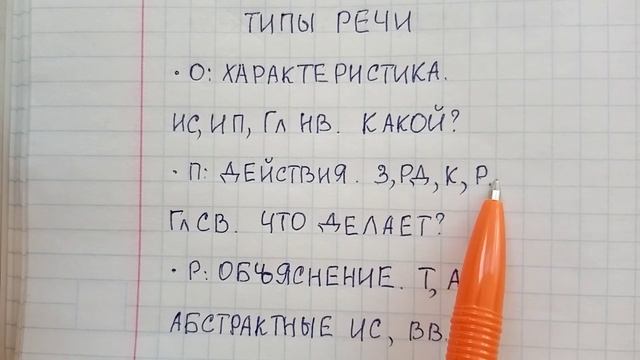 ТИПЫ РЕЧИ
· О: ХАРАКТЕРИСТИКА.
ИС, ИП, Гл НВ. КАКОЙ?
· П: ДЕЙСТВИЯ. З, РД, К, Р.
Гл СВ. ЧТО ДЕЛАЕТ?
· Р: ОБЪЯСНЕНИЕ. Т, А
АБСТРАКТНЫЕ ИС, ВВ.